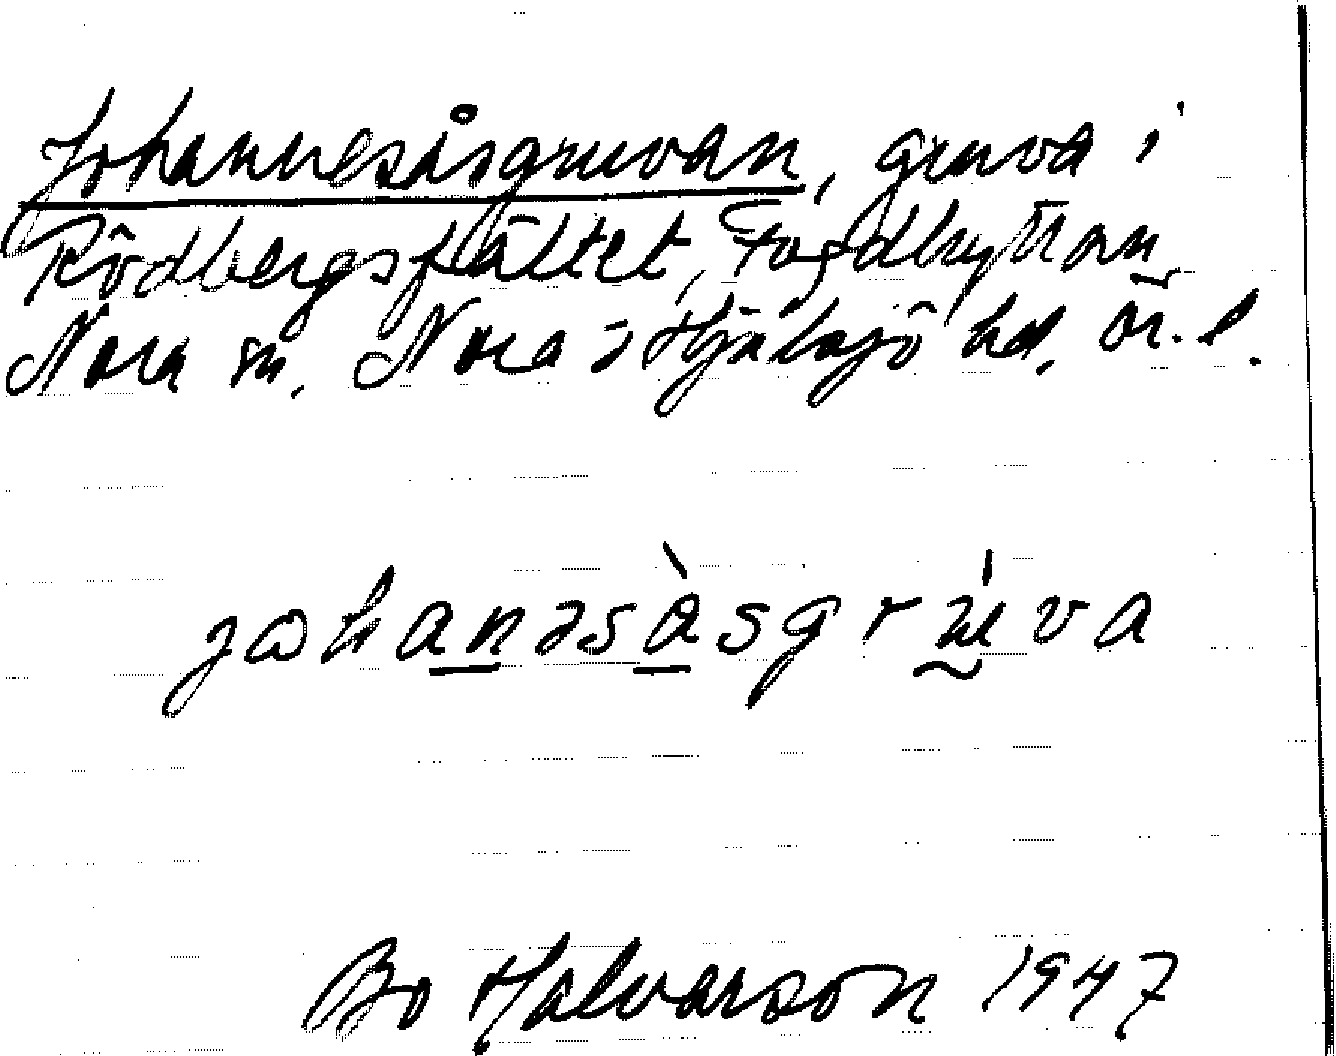 Johannesåsgruvan, gruva i
Rödbergsfältet, Fogdhyttan
Nora sn. Nora o Hjulsjö hd. Ör. l.
jωhanəsàsgrúva
Bo Halvarson 1947